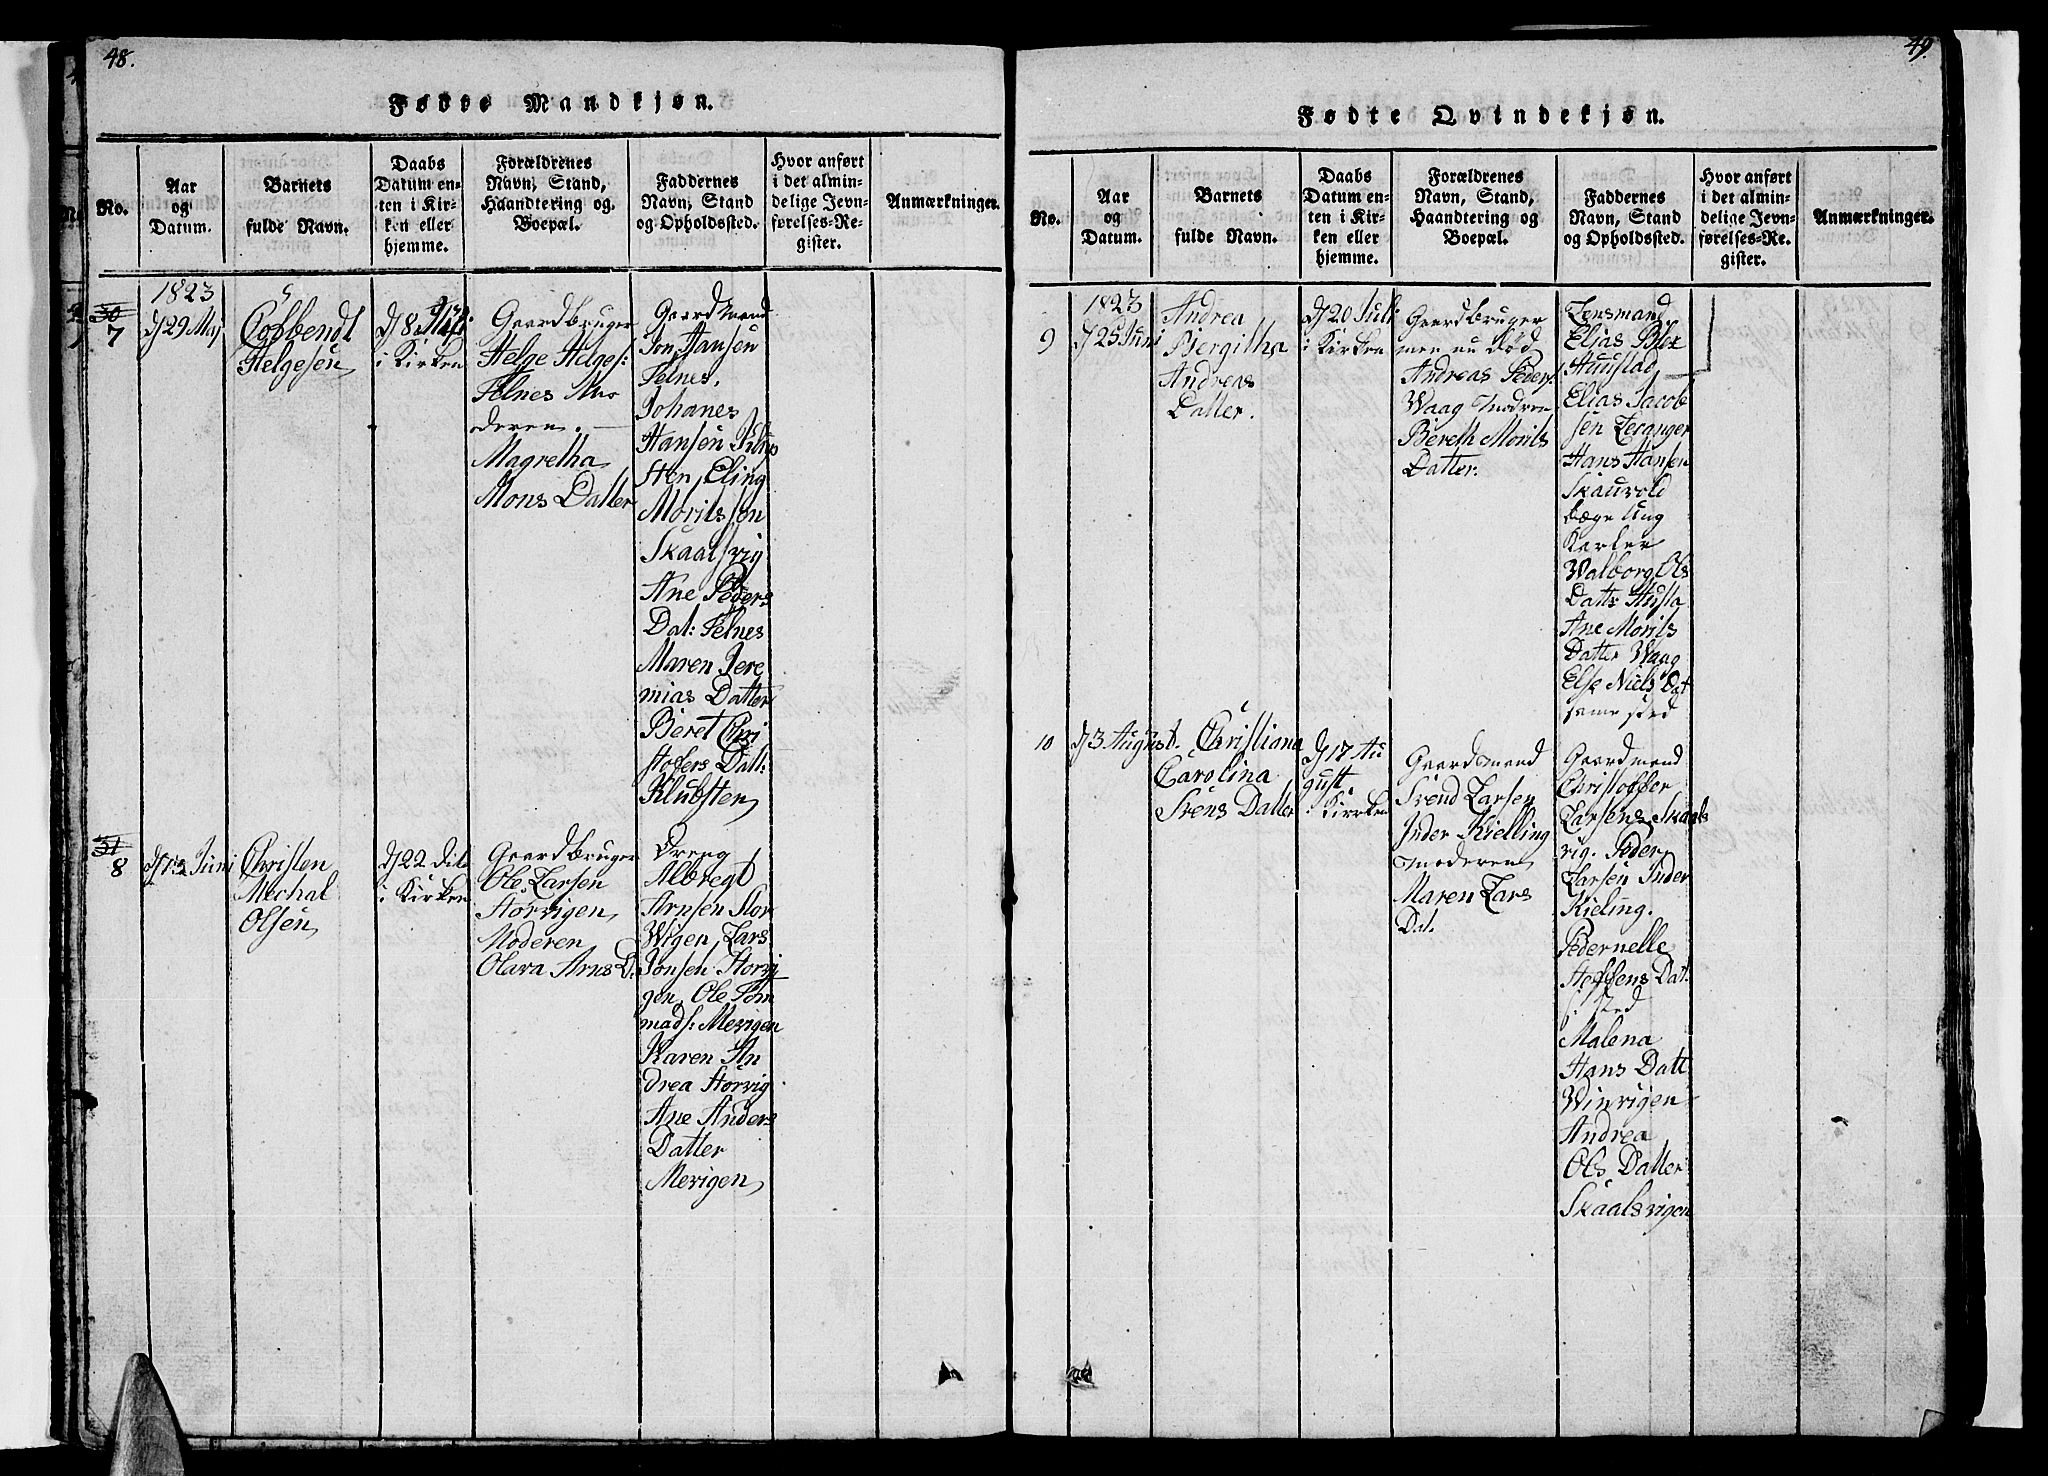 48.
Fødte Mandkjøn.
No.
Aar
og
Datum.
Barnets
fulde Navn.
Daabs
Datum en-
ten i Kir-
ken eller
hjemme.
Forældrenes
Navn, Stand,
Haandtering og
Boepæl.
Faddernes
Navn, Stand
og Opholdssted.
Hvor anført
i det almin-
delige Jevn-
førelses-Re-
gister.
Anmærkninger.
1823
30
7
d 29 Maj
Helgesen
d 8
i Kirken
Gaardbruger
Helge Helges:
Felnes Mo
deren.
Magretha
Mons Datter
Gaardmand
Jon Hansen
Felnes,
Johanes
Hansen
Eling
Morits søn
Skaalsvig
Ane Peders
Dat: Felnes
Maren Jere
mias Datter
Beret Chri
stofers Datt:
Klubsten
31
8
d 12 Juni
Christen
Michal
Olsen
d 22 dito
i Kirken
Gaardbruger
Ole Larsen
Storvigen
Moderen
Olava Arns D.
Dreng
Albregt
Arnsen Stor
Wigen, Lars
Jonsen Storvi
gen, Ole Tom
mads: Mevigen
Karen An
drea Storvig
Ane Anders
Datter
Mevigen
49.
Fødte Qvindekjøn.
No.
Aar
og
Datum.
Barnets
fulde Navn.
Daabs
Datum en-
ten i Kir-
ken eller
hjemme.
Forældrenes
Navn, Stand,
Haandtering og
Boepæl.
Faddernes
Navn, Stand
og Opholdssted.
Hvor anført
i det almin-
delige Jevn-
førelses-Re-
gister.
Anmærkninger.
1823
9
d 25 Juni
Andrea
Bergitha
Andreas
Datter.
d 20 Juli
i Kirken
Gaardbruger
men nu død
Andreas Peders:
Waag Modren
Bereth Morits
Datter:
Lensmand
Elias Blix
Austad
Elias Jacob
sen Leranger
Hans Hansen
Skauvold
bæge Ung
Karler
Walborg Ols
Datter Austa
Ane Morits
Datter Waag
Else Niels Dat
samme sted
10
d 3 August.
Christiana
Carolina
Svens Datter
d 17 Au
gust
i Kirken
Gaardmand
Svend Larsen
Inder Kielling
moderen
Maren Lars
Dat.
Gaardmand
Christoffer
Larsens Skaals
vig. Peder
Larsen Inder
Kieling.
Pedernelle
Steffens Dat:
sted
Malena
Hans Datt
Winvigen
Andrea
Ols Datter
Skaalsvigen